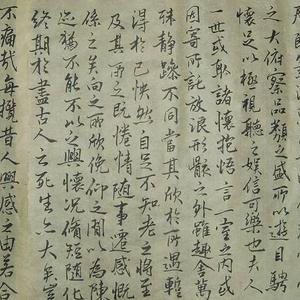 之大俯察品類之盛所以遊目騁
懷足以極視聽之娛信可樂也夫人
一世或取諸懷抱悟言一室之內或
因寄所託放浪形骸之外雖趣舍萬
殊靜躁不同當其欣於所遇暫
得於己怏然自足不知老之將至
及其所之既惓情隨事遷感慨
係之矣向之所欣俛仰之間以為陳
迹猶不能不以之興懷況脩短隨化
終期於盡古人云死生亦大矣豈
不痛哉每攬昔人興感之由若合